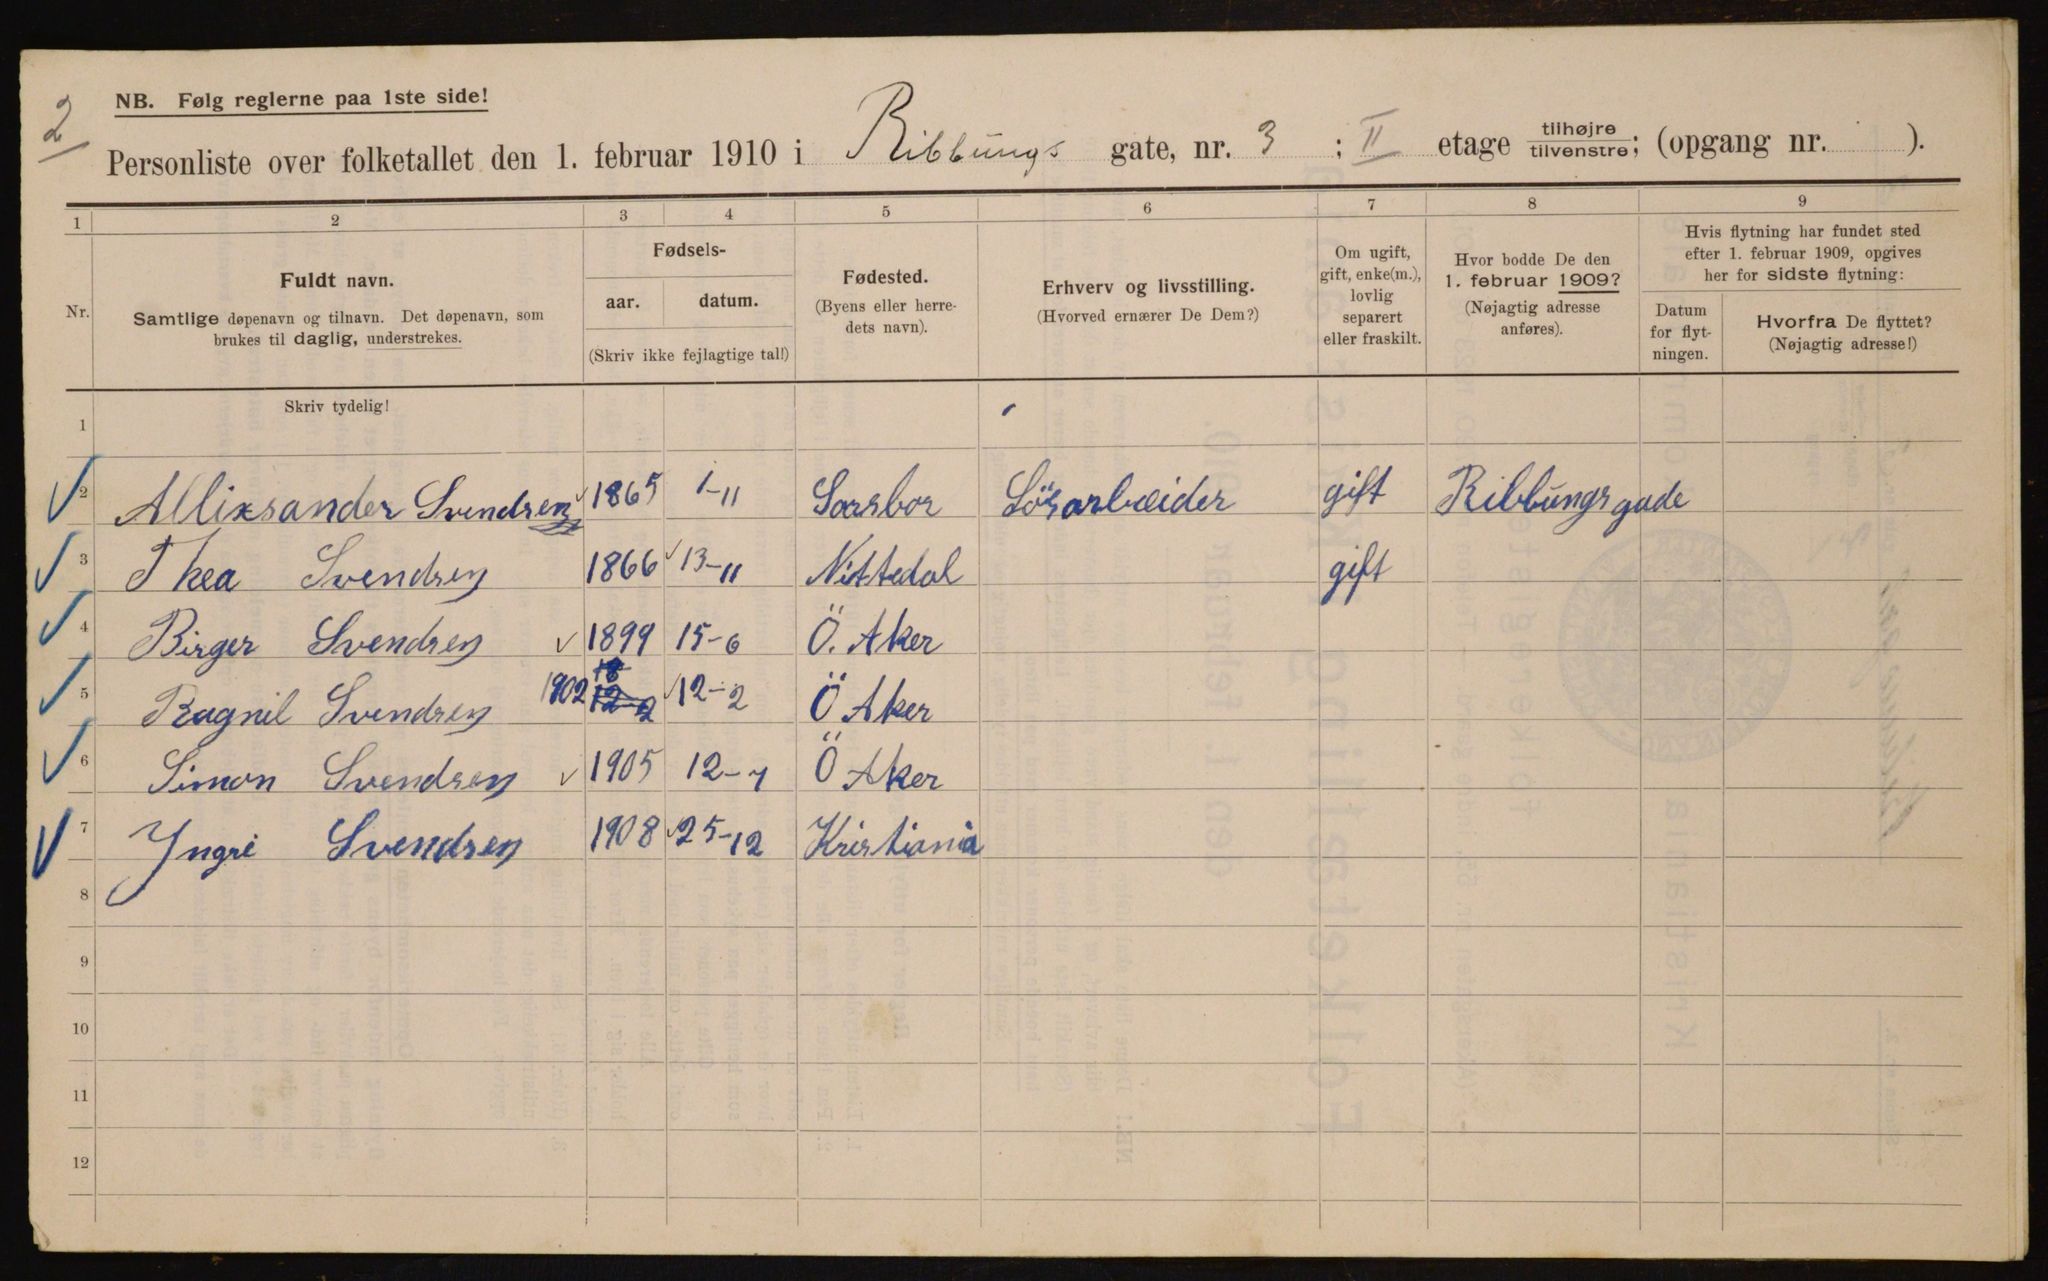 2
NB. Følg reglerne paa 1ste side!
Personliste over folketallet den 1. februar 1910 i Ribbungs gate, nr. 3 ; II etage tilhøjre / tilvenstre; (opgang nr. ).
1 2 3 4 5 6 7 8 9
Nr.
Fuldt navn.
Samtlige døpenavn og tilnavn. Det døpenavn, som
brukes til daglig, understrekes.
Fødsels-
aar. datum.
(Skriv ikke fejlagtige tal!)
Fødested.
(Byens eller herre-
dets navn).
Erhverv og livsstilling.
(Hvorved ernærer De Dem?)
Om ugift,
gift, enke(m.),
lovlig
separert
eller fraskilt.
Hvor bodde De den
1. februar 1909?
(Nøjagtig adresse
anføres).
Hvis flytning har fundet sted
efter 1. februar 1909, opgives
her for sidste flytning:
Datum
for flyt-
ningen.
Hvorfra De flyttet?
(Nøjagtig adresse!)
Skriv tydelig!
1
2 Allixsander Svendsen 1865 1-11 Sarsbor Lösarbeider gift Ribbungsgade
3 Thea Svendsen 1866 13-11 Nittedal gift
4 Birger Svendsen 1899 15-6 Ö. Aker
5 Ragnil Svendsen 1902 12-2 Ö Aker
6 Simon Svendsen 1905 12-7 Ö Aker
7 Yngri Svendsen 1908 25-12 Kristiania
8
9
10
11
12